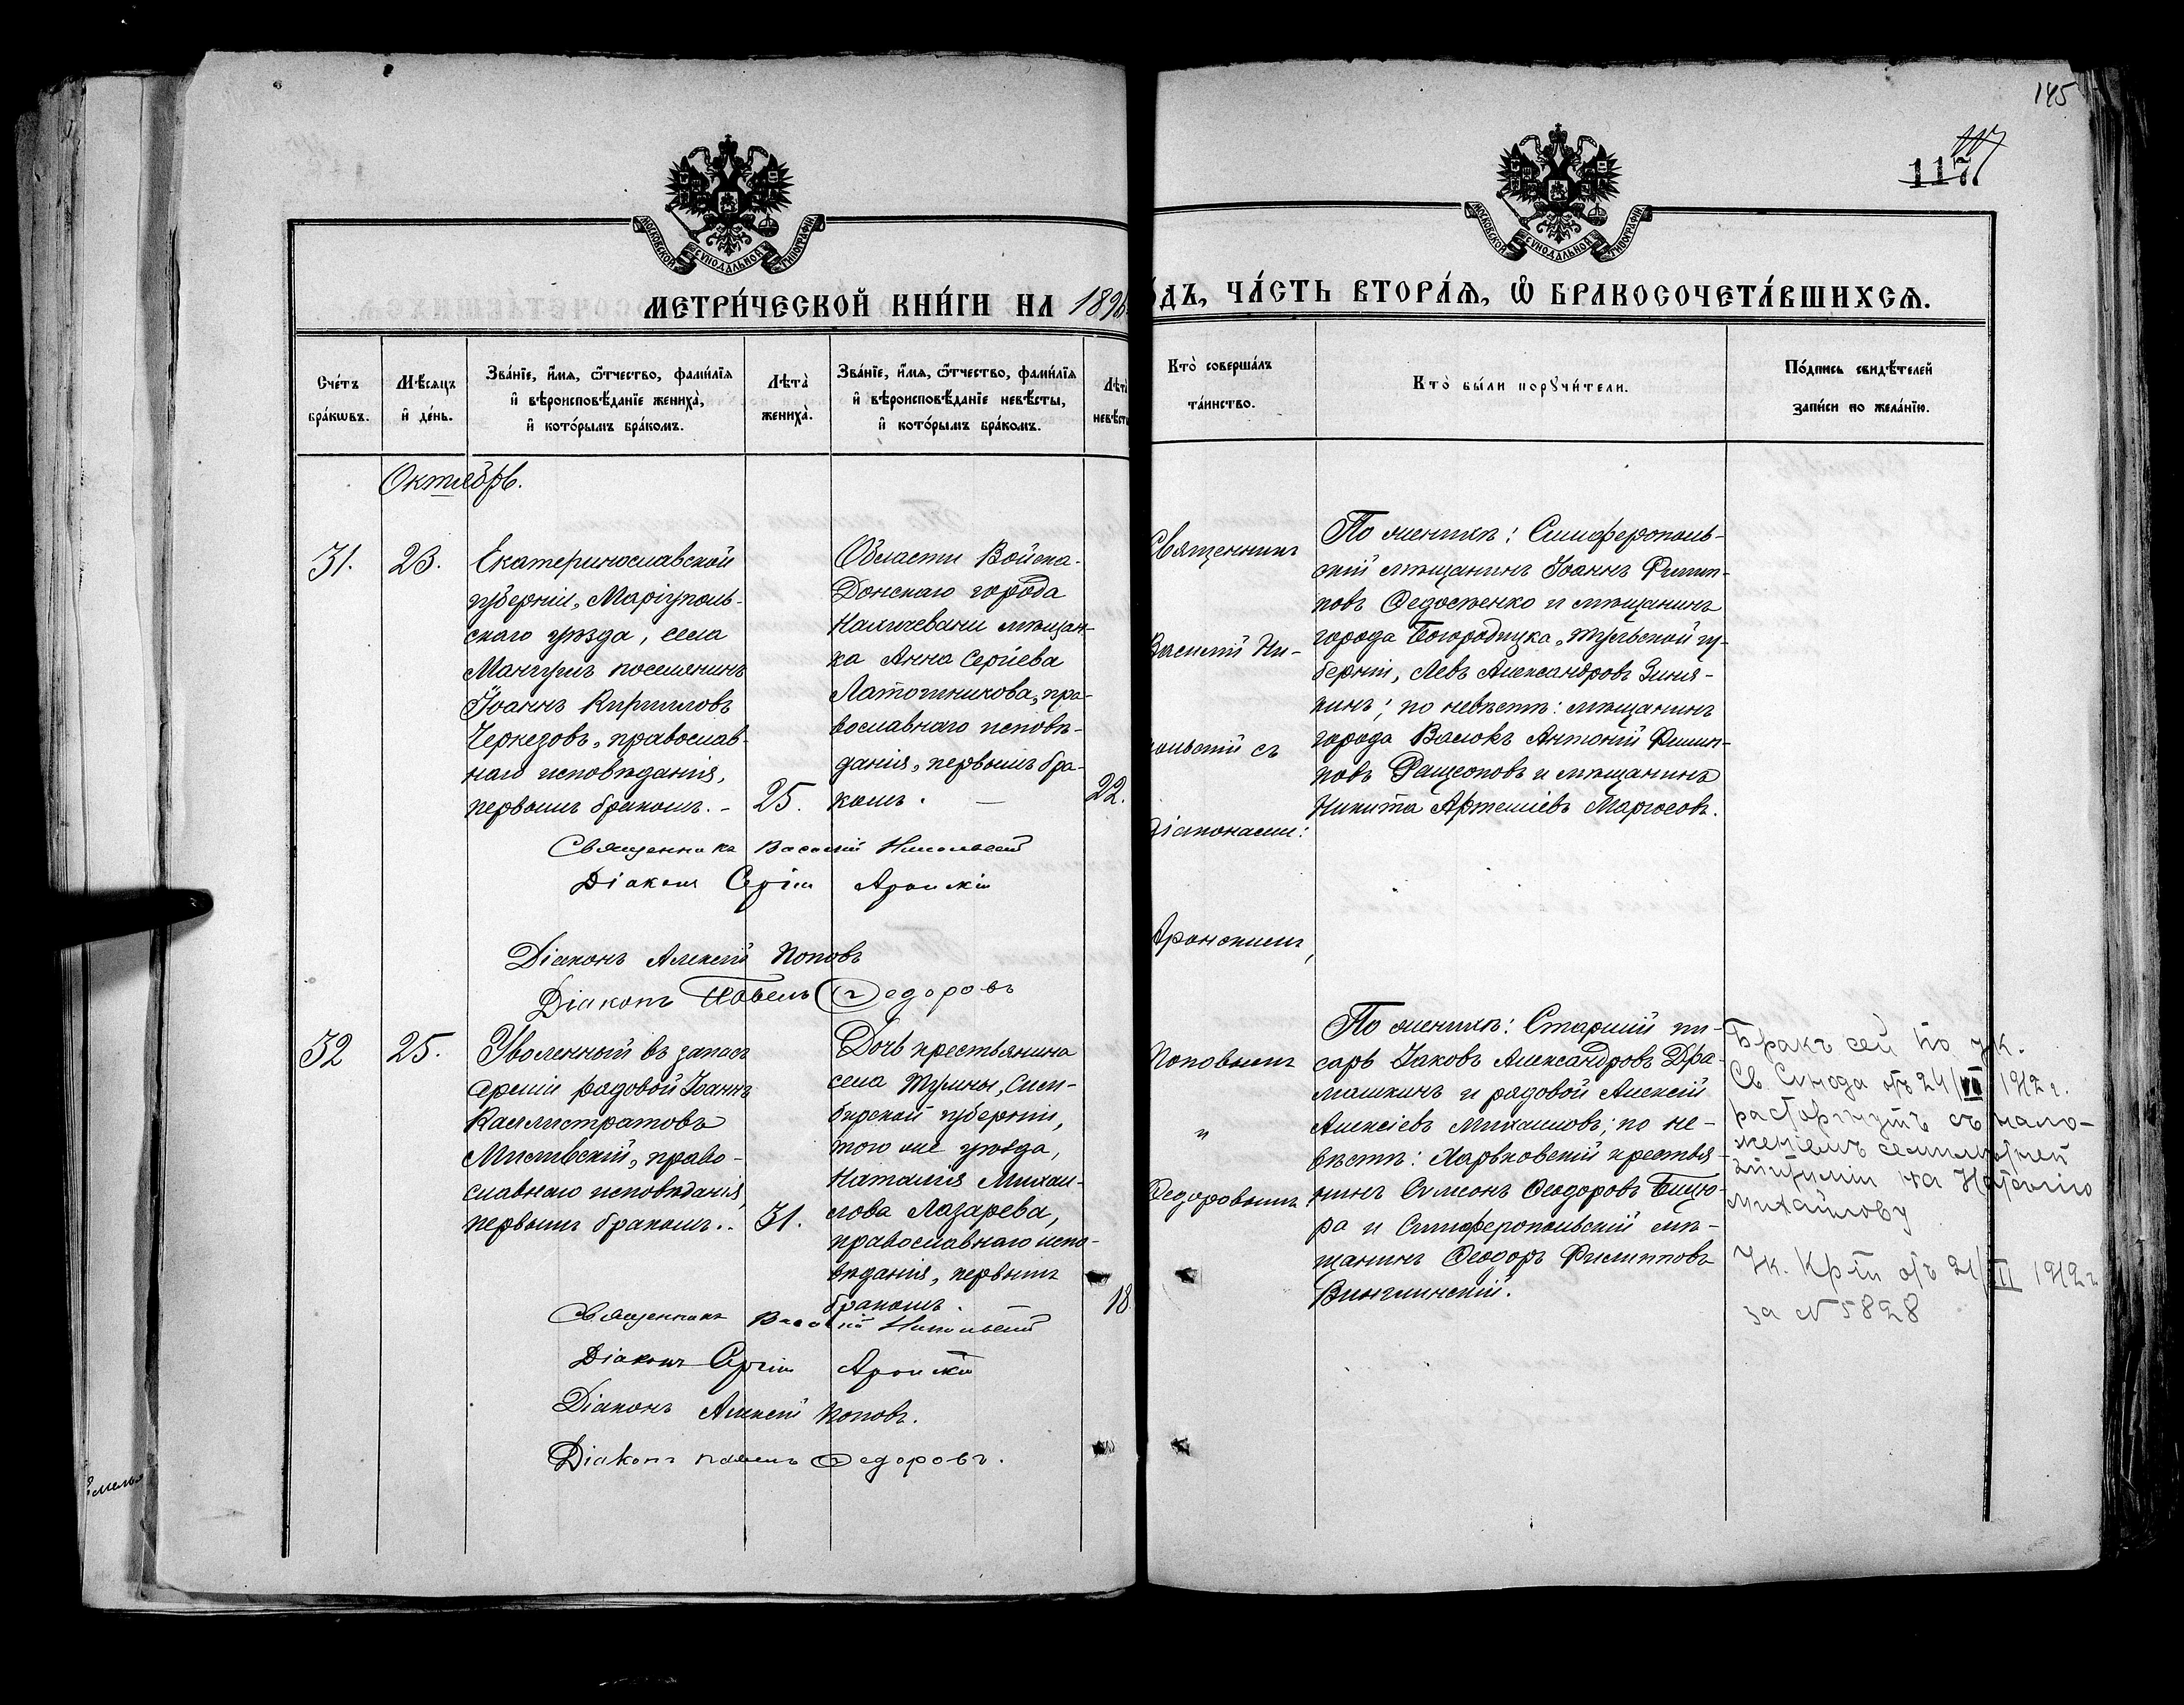 145
117
МОСКОВСКОЙ СѴНОДАЛЬНОЙ ТИПОГРАФІИ
МОСКОВСКОЙ СѴНОДАЛЬНОЙ ТИПОГРАФІИ
МЕТРИ́ЧЕСКОЙ КНИ́ГИ НА 1896
ЧА́СТЬ ВТОРА́Ѧ, Ѽ БРАКОСОЧЕТА́ВШИХСѦ.
Сче́тъ
бра́кѡвъ.
Мѣ́сяцъ
и҆ де́нь.
Зва́нїе, и҆́мѧ, ѻ҆́тчество, фами́лїѧ
и҆ вѣроисповѣ́данїе жениха̀,
и҆ кото́рымъ бра́комъ.
Лѣта̀
жениха̀.
Зва́нїе, и҆́мѧ, ѻ҆́тчество, фами́лїѧ
и҆ вѣроисповѣ́данїе невѣ́сты,
и҆ кото́рымъ бра́комъ.
Кто̀ соверша́лъ
та́инство.
Кто̀ бы́ли порꙋчи́тели.
По́дпись свидѣ́телей
за́писи по жела́нїю.
Октябрь.
31.
23.
Екатеринославской
губерніи, Маріуполь-
скаго уѣзда, села
Мангушъ поселянинъ
Іоаннъ Кирилловъ
Черкезовъ, православ-
наго исповѣданія,
первымъ бракомъ. –
25.
Области Войска
Донскаго города
Нахичевани мѣщан-
ка Анна Сергіева
Латошникова, пра-
вославнаго исповѣ-
данія, первымъ бра-
комъ. —
22.
Священникъ
Василій Ни-
кольскій съ
Діаконами:
Аронскимъ,
Поповымъ
и
Федоровымъ
По женихѣ: Симферополь-
скій мѣщанинъ Іоаннъ Филип-
повъ Федосѣенко и мѣщанинъ
города Богородицка, Тульской гу-
берніи, Левъ Александровъ Зиня-
кинъ; по невѣстѣ: мѣщанинъ
города Валокъ Антоній Филип-
повъ и мѣщанинъ
Никита Артеміевъ Маргосовъ.
Священникъ Василій Никольскій
Діаконъ Сергій Аронскій
Діаконъ Алексій Поповъ
Діаконъ Павелъ Федоровъ
32
25.
Уволенный въ запасъ
арміи рядовой Іоаннъ
Каллистратовъ
Мысивскій, право-
славнаго исповѣданія,
первымъ бракомъ..
31.
Дочь крестьянина
села Тушны, Сим-
бирской губерніи,
того же уѣзда,
Наталія Михаи-
лова Лазарева,
православнаго испо-
вѣданія, первымъ
бракомъ.
18
По женихѣ: Старшій пи-
сарь Іаковъ Александровъ Дра-
машкинъ и рядовой Алексій
Алексіевъ Михаиловъ; по не-
вѣстѣ: Харьковскій крестья-
нинъ Сѵмеонъ Ѳеодоровъ Бицю-
ра и Симферопольскій мѣ-
щанинъ Ѳеодоръ Филипповъ
Винглинскій.
Бракъ сей по ук.
Св. Синода отъ 24/VII 1912 г.
расторгнутъ съ нало-
женіемъ семилѣтней
эпитиміи на Наталію
Михайлову
Ук. Кр-ти отъ 21/ 1912 г
за № 5828
Священникъ Василій Никольскій
Діаконъ Сергій Аронскій
Діаконъ Алексій Поповъ.
Діаконъ Павелъ Федоровъ.